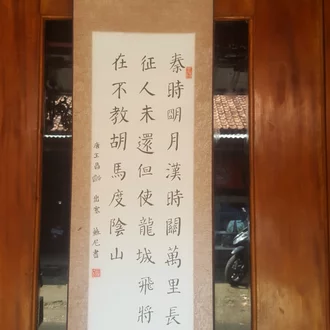 秦時明月漢時關萬里長
征人未還但使龍城飛將
在不教胡馬度陰山
唐王昌齡 出塞 書